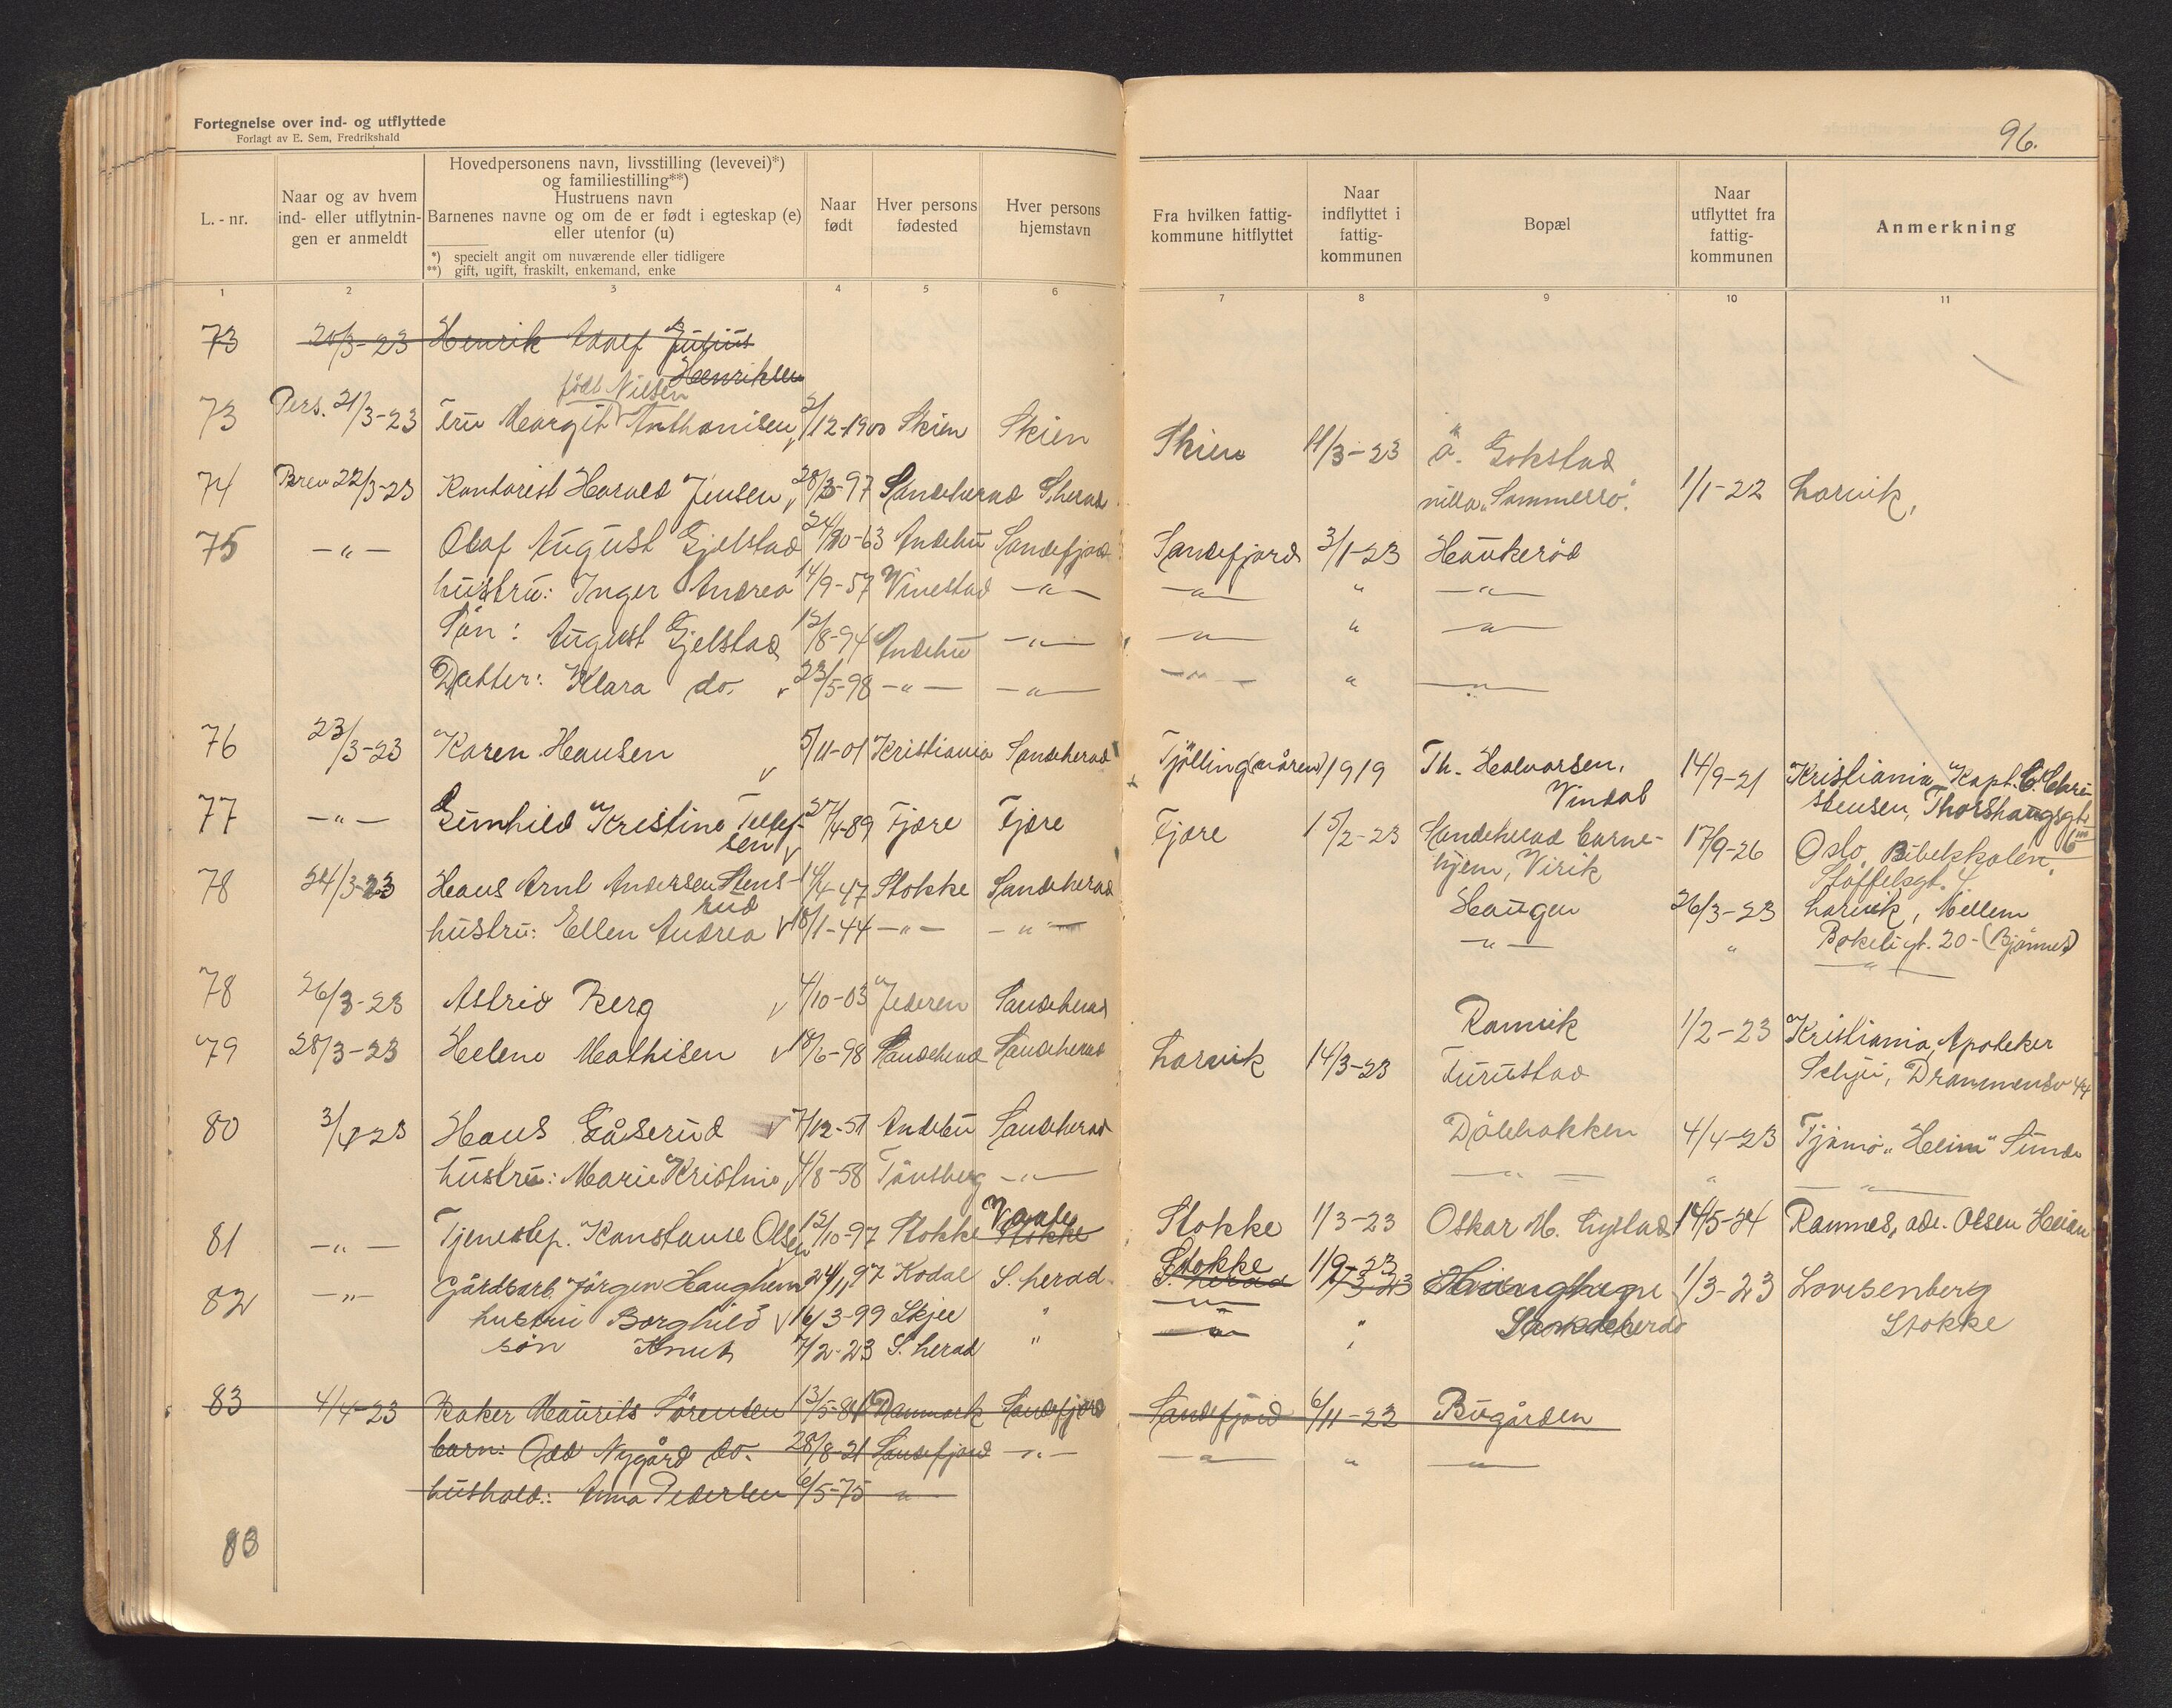 Fortegnelse over ind- og utflyttede
Forlagt av E. Sem, Fredrikshald
96.
L. - nr.
Naar og av hvem
ind- eller utflytnin-
gen er anmeldt
Hovedpersonens navn, livsstilling (levevei)*)
og familiestilling**)
Hustruens navn
Barnenes navne og om de er født i egteskap (e)
eller utenfor (u)
*) specielt angit om nuværende eller tidligere
**) gift, ugift, fraskilt, enkemand, enke
Naar
født
Hver persons
fødested
Hver persons
hjemstavn
Fra hvilken fattig-
kommune hitflyttet
Naar
indflyttet i
fattig-
kommunen
Bopæl
Naar
utflyttet fra
fattig-
kommunen
Anmerkning
1 2 3 4 5 6 7 8 9 10 11
73 20/3-23 Henrik Adolf Julius
Henriksen
født Nilsen
73 Pers. 21/3-23 Fru Margit Anthonisen 2/12-1900 Skien Skien Skien 11/3-23 ö. Gokstad
74 Brev 22/3-23 Kontorist Harald Jensen 28/3-97 Sandeherad S.herad villa "Sommerro". 1/1-22 Larvik,
75 -"- Olaf August Gjelstad 24/10-63 Andebu Sandefjord Sandefjord 3/1-23 Haukerød
hustru: Inger Andrea 14/9-57 Vivestad -"- -"- " -"-
Søn: August Gjelstad 12/8-94 Andebu -"- -"- " -"-
Datter: Klara do. 23/5-98 -"- -"- -"- " -"-
76 23/3-23 Karen Hansen 5/11-01 Kristiania Sandeherad Tjölling 1919 Th. Halvorsen, 14/9-21 Kristiania, Kapt. C. Chri-
Vindal stensen, Thorshaugsgt.
77 -"- Gunhild Kristine Tellef- 27/4-89 Fjære Fjære Fjære 15/2-23 Sandeherad barne- 17/9-26 Oslo, Bibelskolen,
sen hjem, Virik Staffelsgt. 4
78 24/3-23 Hans Arnt Andersen Stens- 14/4-47 Stokke Sandeherad Haugen 26/3-23 Larvik, Mellem
rud
hustru: Ellen Andrea 18/1-44 -"- -"- -"- " Bokeligt. 20- (Bjönnes)
78 26/3-23 Astrid Berg 4/10-03 Jæderen Sandeherad Ranvik 1/2-23 Kristiania, Apoteker
79 28/3-23 Helene Mathisen 18/6-98 Sandeherad Sandeherad Larvik 14/3-23 Furustad Drammensv 44
80 3/4-23 Hans Gåserud 7/12-51 Andebu Sandeherad Dölebakken 4/4-23 Tjømø "Heim" Sunde
hustru: Marie Kristine 4/8-58 Tönsberg -"- -"- " -"-
81 -"- Tjenestep. Konstanse Olsen 12/10-97 Stokke Vaale Stokke Stokke 1/3-23 Oskar M. Gystad 14/5-24 Ramnes, adr. Olsen Heian
82 -"- Gårdsarb. Jørgen Haughem 24/11 97 Kodal S. herad Stokke S. herad 1/9-23 1/3-23 1/3-23 Lovisenberg
hustru Borghild 16/3-99 Skjee " -"- " Sandeherad Stokke
søn Knut 7/2-23 S. herad " -"- "
83 4/4-23 Baker Maurits Sörensen 13/5-81 Danmark Sandefjord Sandefjord 6/11-22 Bugården
barn: Odd Nygård do. 28/8-21 Sandefjord -"- -"- " -"-
hushold.: Anna Pedersen 6/5-75 "
83